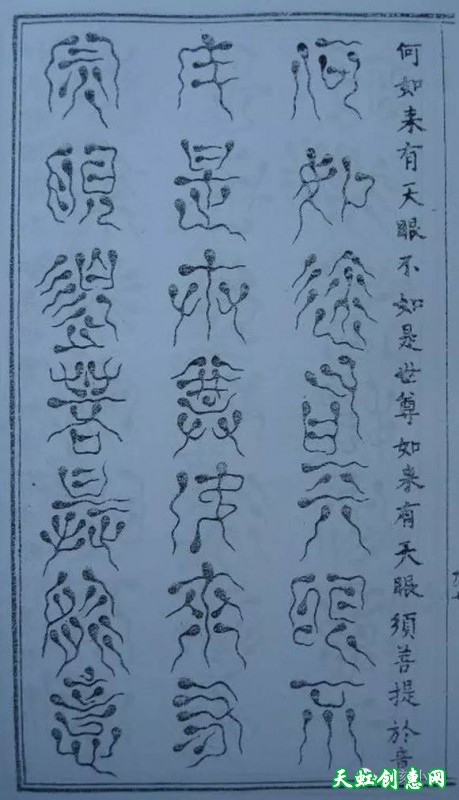 何如来有天眼不如是世尊如来有天眼須菩提於意
何如來有天眼不
如是世尊如來有
天眼須菩提於意
天虹创惠网